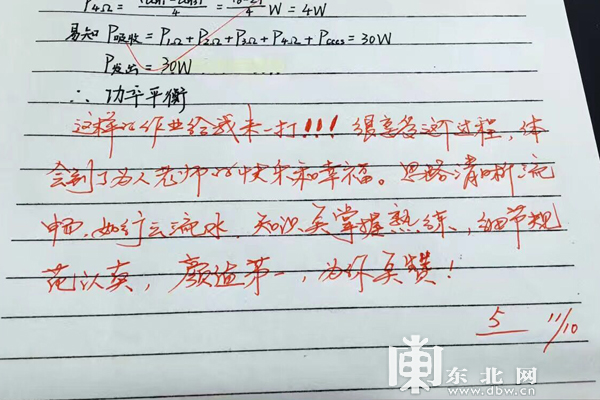 P4Ω = 4 = 4 W = 4W
易知 P吸收 = P1Ω + P2Ω + P3Ω + P4Ω + Pcccs = 30W
P发出 = 30W
∴ 功率平衡
这样的作业给我来一打!!! 很享受这个过程,体
会到了为人老师的快乐和幸福。思路清晰流
畅、如行云流水、知识点掌握熟练、细节规
范认真,颜值第一,为你点赞!
5 11/10
东北网
www.dbw.cn